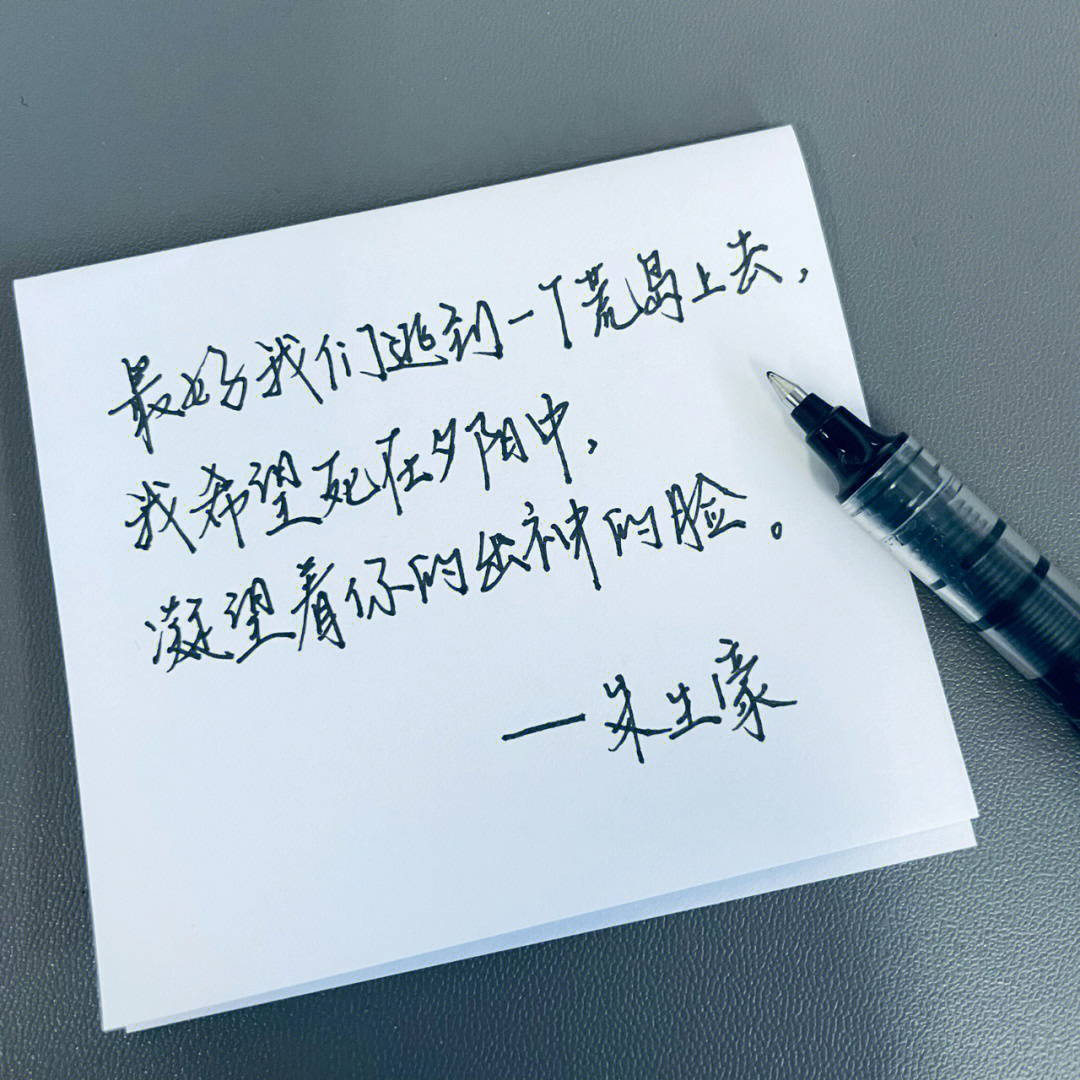 最好我们逃到一个荒岛上去，
我希望死在夕阳中，
凝望着你的出神的脸。
——朱生豪